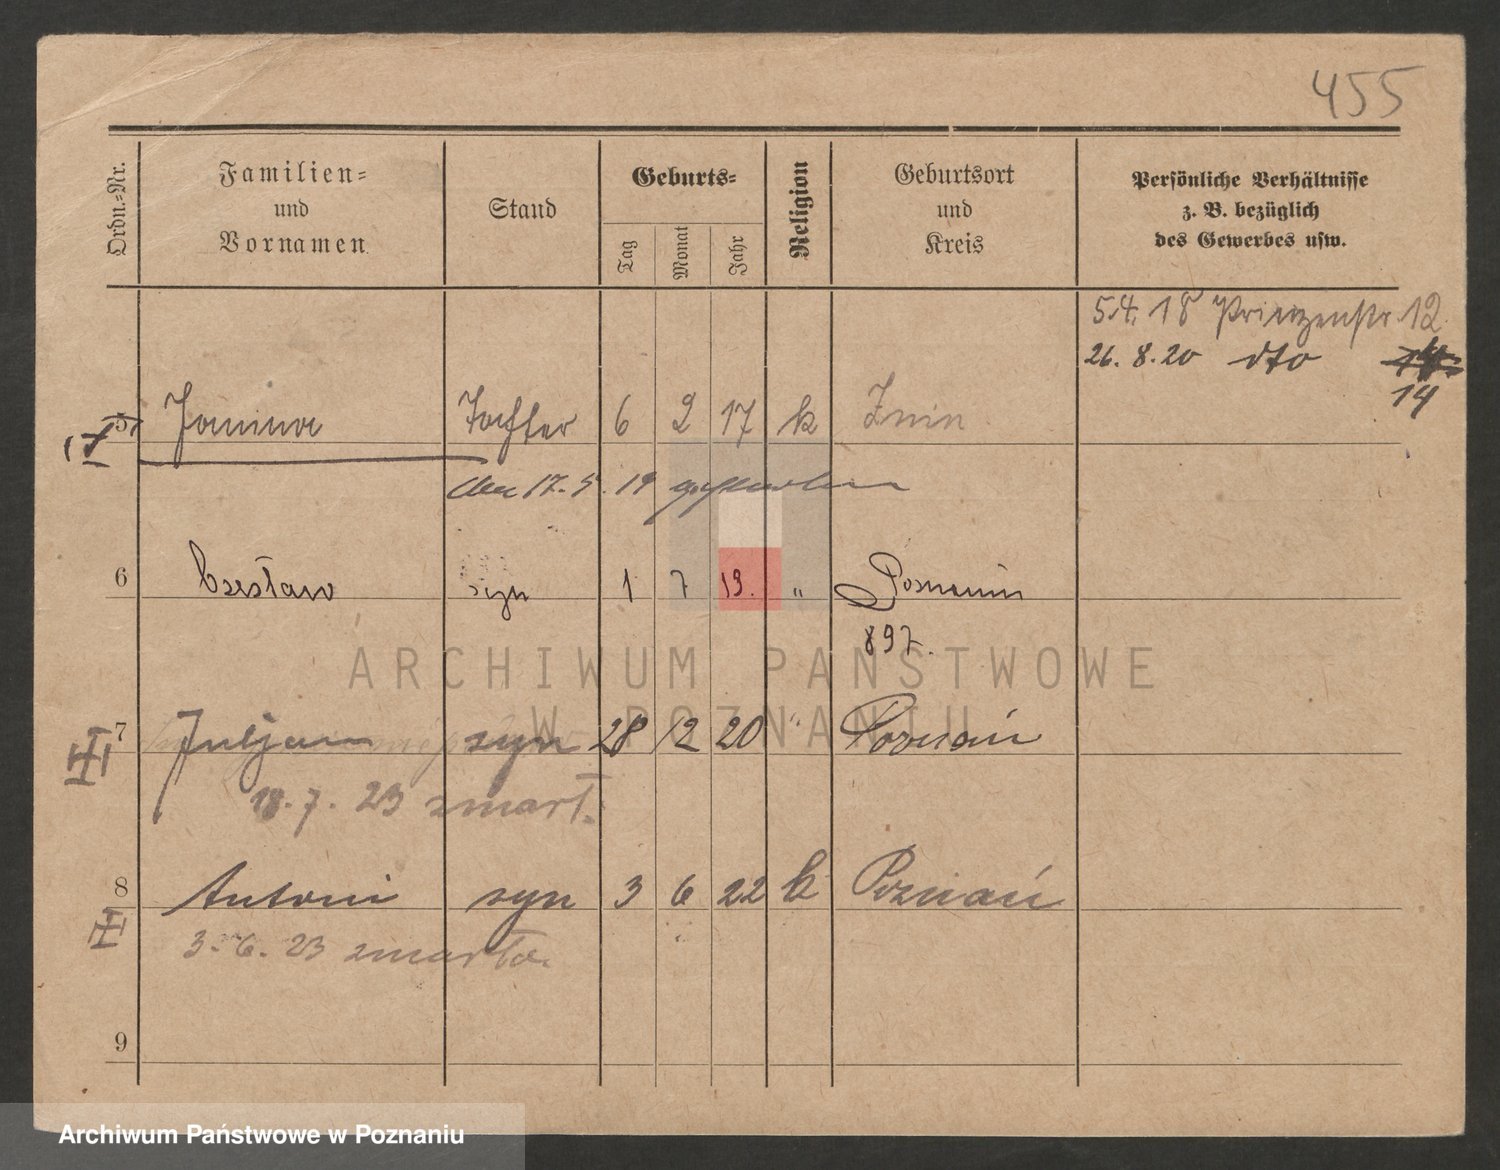 455
Ordn.-Nr.
Familien-
und
Vornamen
Stand
Geburts-
Tag
Monat
Jahr
Religion
Geburtsort
und
Kreis
Persönliche Verhältnisse
z. B. bezüglich
des Gewerbes usw.
5.4. 18 Prinzenstr. 12
26. 8. 20 dto
14
5 Janina Tochter 6 2 17 k Znin
den 17. 5. 19 gestorben
6 Czesław syn 1 7 19. " Poznań
897.
ARCHIWUM PAŃSTWOWE
W POZNANIU
7 Juljan syn 28 12 20 " Poznań
18. 7. 23 zmarł.
8 Antoni syn 3 6 22 k Poznań
3. 6. 23 zmarł
9
Archiwum Państwowe w Poznaniu